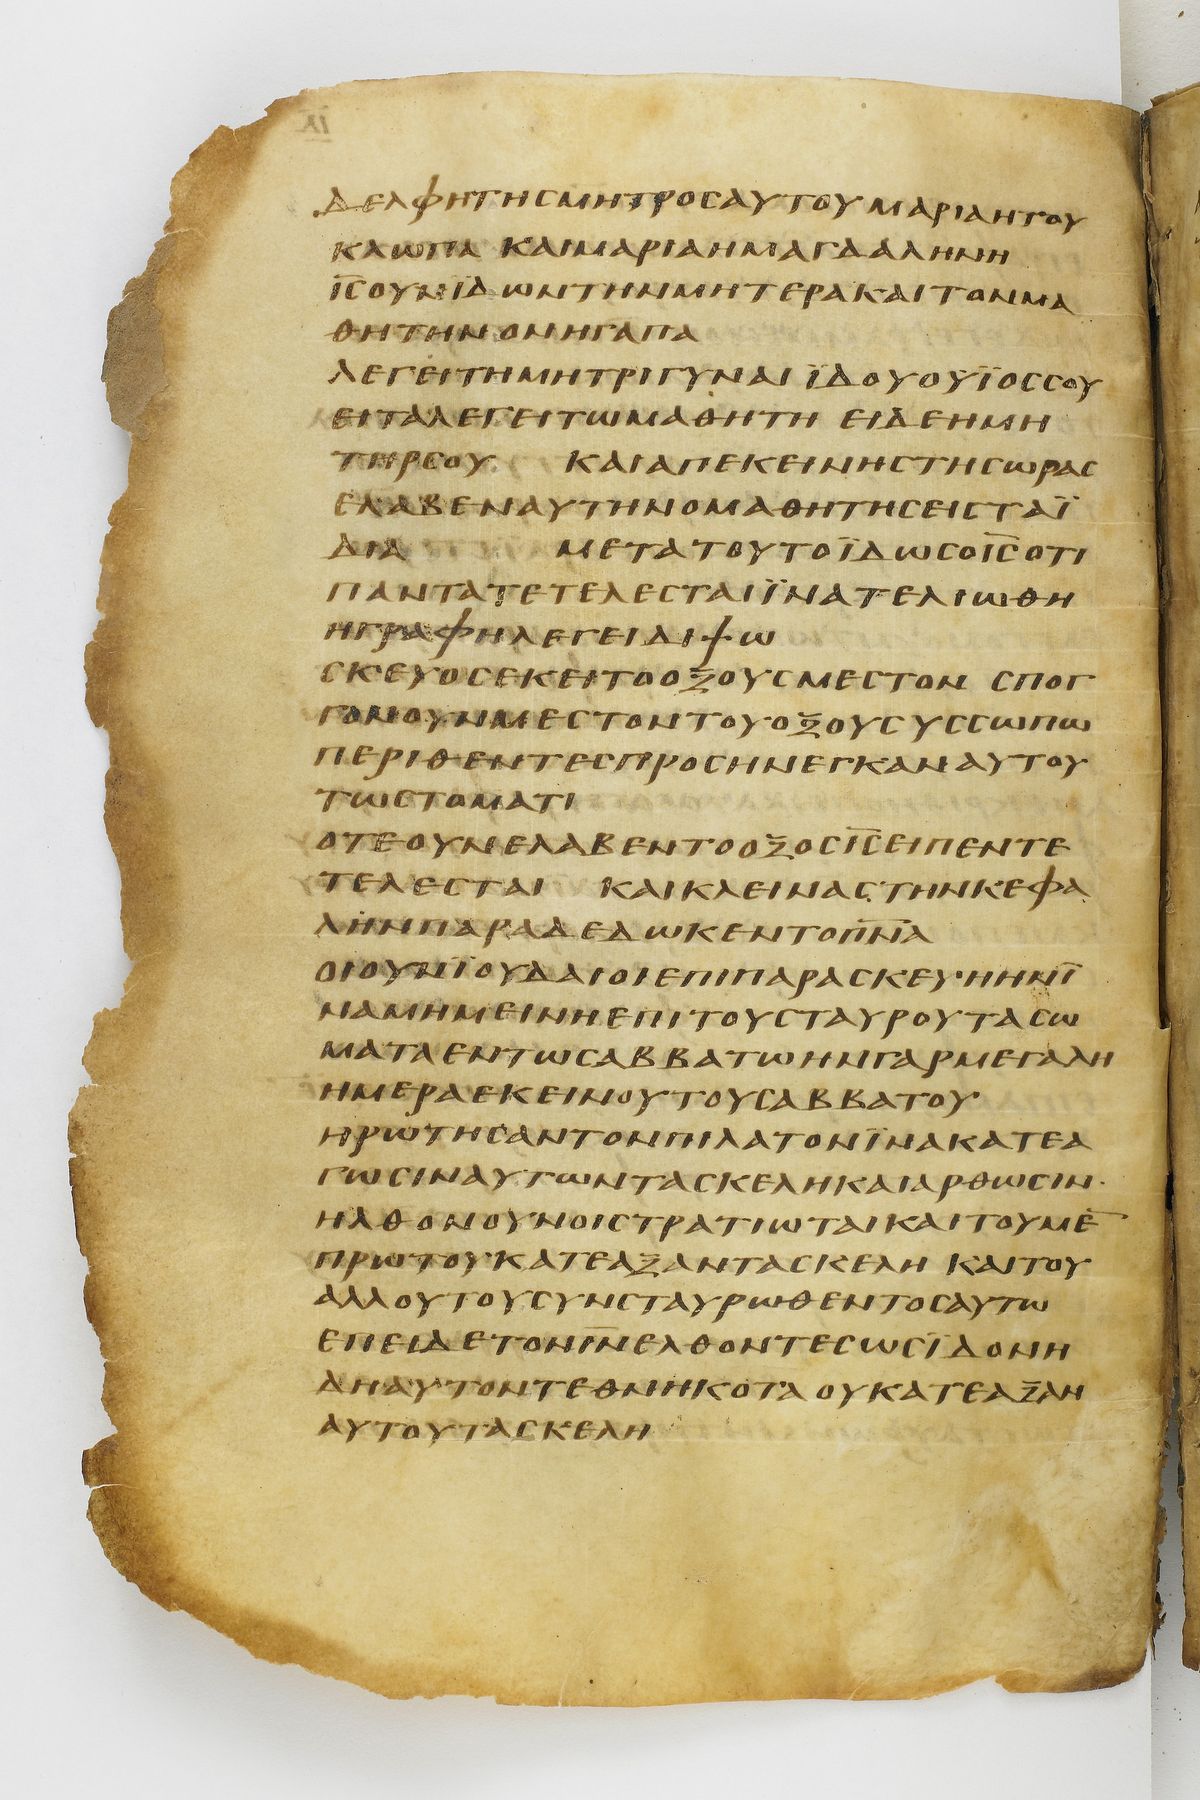 ΔΕΛΦΗΤΗСΜΗΤΡΟСΑΥΤΟΥΜΑΡΙΑΗΤΟΥ
ΚΛΩΠΑ ΚΑΙΜΑΡΙΑΗΜΑΓΔΑΛΗΝΗ
Ι̅С̅ΟΥΝΪΔΩΝΤΗΝΜΗΤΕΡΑΚΑΙΤΟΝΜΑ
ΘΗΤΗΝΟΝΗΓΑΠΑ
ΛΕΓΕΙΤΗΜΗΤΡΙΓΥΝΑΙ ΪΔΟΥΟΥΪΟССΟΥ
ΕΙΤΑΛΕΓΕΙΤΩΜΑΘΗΤΗ ΕΙΔΕΗΜΗ
ΤΗΡСΟΥ ΚΑΙΑΠΕΚΕΙΝΗСΤΗСΩΡΑС
ΕΛΑΒΕΝΑΥΤΗΝΟΜΑΘΗΤΗСΕΙСΤΑΪ
ΔΙΑ ΜΕΤΑΤΟΥΤΟΪΔΩСΟΙ̅С̅ΟΤΙ
ΠΑΝΤΑΤΕΤΕΛΕСΤΑΙΪΝΑΤΕΛΙΩΘΗ
ΗΓΡΑΦΗΛΕΓΕΙΔΙΨΩ
СΚΕΥΟСΕΚΕΙΤΟΟΞΟΥСΜΕСΤΟΝ СΠΟΓ
ΓΟΝΟΥΝΜΕСΤΟΝΤΟΥΟΞΟΥСΥССΩΠΩ
ΠΕΡΙΘΕΝΤΕСΠΡΟСΗΝΕΓΚΑΝΑΥΤΟΥ
ΤΩСΤΟΜΑΤΙ
ΟΤΕΟΥΝΕΛΑΒΕΝΤΟΟΞΟСΙ̅С̅ΕΙΠΕΝΤΕ
ΤΕΛΕСΤΑΙ ΚΑΙΚΛΕΙΝΑСΤΗΝΚΕΦΑ
ΛΗΝΠΑΡΑΔΕΔΩΚΕΝΤΟΠ̅Ν̅Α̅
ΟΙΟΥΝΪΟΥΔΑΙΟΙΕΠΙΠΑΡΑСΚΕΥΗΗΝΪ
ΝΑΜΗΜΕΙΝΗΕΠΙΤΟΥСΤΑΥΡΟΥΤΑСΩ
ΜΑΤΑΕΝΤΩСΑΒΒΑΤΩΗΝΓΑΡΜΕΓΑΛΗ
ΗΜΕΡΑΕΚΕΙΝΟΥΤΟΥСΑΒΒΑΤΟΥ
ΗΡΩΤΗСΑΝΤΟΝΠΙΛΑΤΟΝΪΝΑΚΑΤΕΑ
ΓΩСΙΝΑΥΤΩΝΤΑСΚΕΛΗΚΑΙΑΡΘΩСΙΝ·
ΗΛΘΟΝΟΥΝΟΙСΤΡΑΤΙΩΤΑΙΚΑΙΤΟΥΜΕ̅
ΠΡΩΤΟΥΚΑΤΕΑΞΑΝΤΑСΚΕΛΗ ΚΑΙΤΟΥ
ΑΛΛΟΥΤΟΥСΥΝСΤΑΥΡΩΘΕΝΤΟСΑΥΤΩ
ΕΠΕΙΔΕΤΟΝΙ̅Ν̅ΕΛΘΟΝΤΕСΩСΪΔΟΝΗ
ΔΗΑΥΤΟΝΤΕΘΝΗΚΟΤΑ ΟΥΚΑΤΕΑΞΑΝ
ΑΥΤΟΥΤΑСΚΕΛΗ